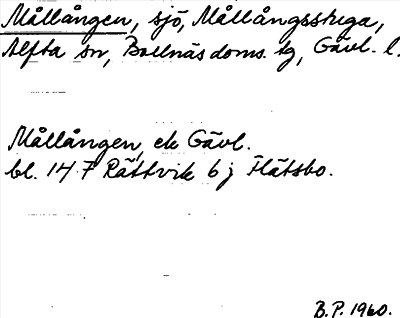 Mållången, sjö, Mållångsstuga,
Alfta sn, Bollnäs doms. tg, Gävl. l.
Mållången, ek Gävl.
bl. 14 7 Rättvik 6 j Flätsbo.
B.P. 1960.